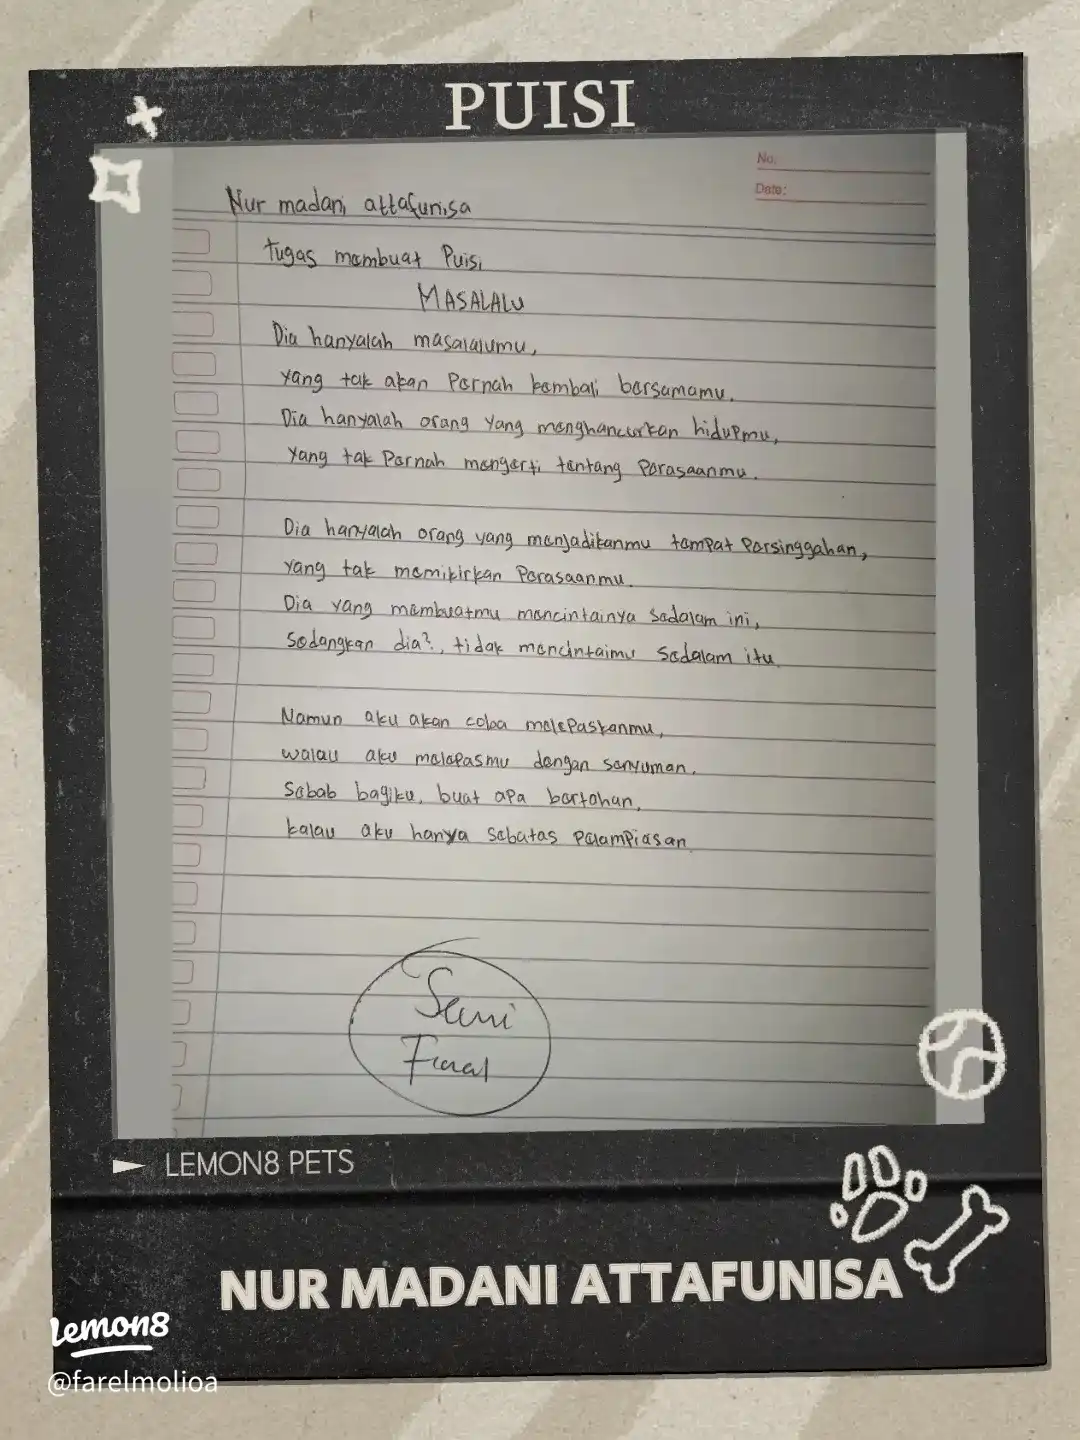 PUISI
No:
Date:
Nur madani attafunisa
Tugas membuat Puisi
MASALALU
Dia hanyalah masalalumu,
yang tak akan Pernah kembali bersamamu.
Dia hanyalah orang yang menghancurkan hidupmu,
Yang tak Pernah mengerti tentang Perasaanmu.
Dia hanyalah orang yang menjadikanmu tempat Persinggahan,
Yang tak memikirkan Perasaanmu.
Dia yang membuatmu mencintainya sedalam ini,
Sedangkan dia?, tidak mencintaimu sedalam itu
Namun aku akan coba melepaskanmu,
walau aku melepasmu dengan senyuman.
Sebab bagiku, buat apa bertahan,
kalau aku hanya sebatas Pelampiasan
Semi
Final
LEMON8 PETS
NUR MADANI ATTAFUNISA
Lemon8
@farelmolioa